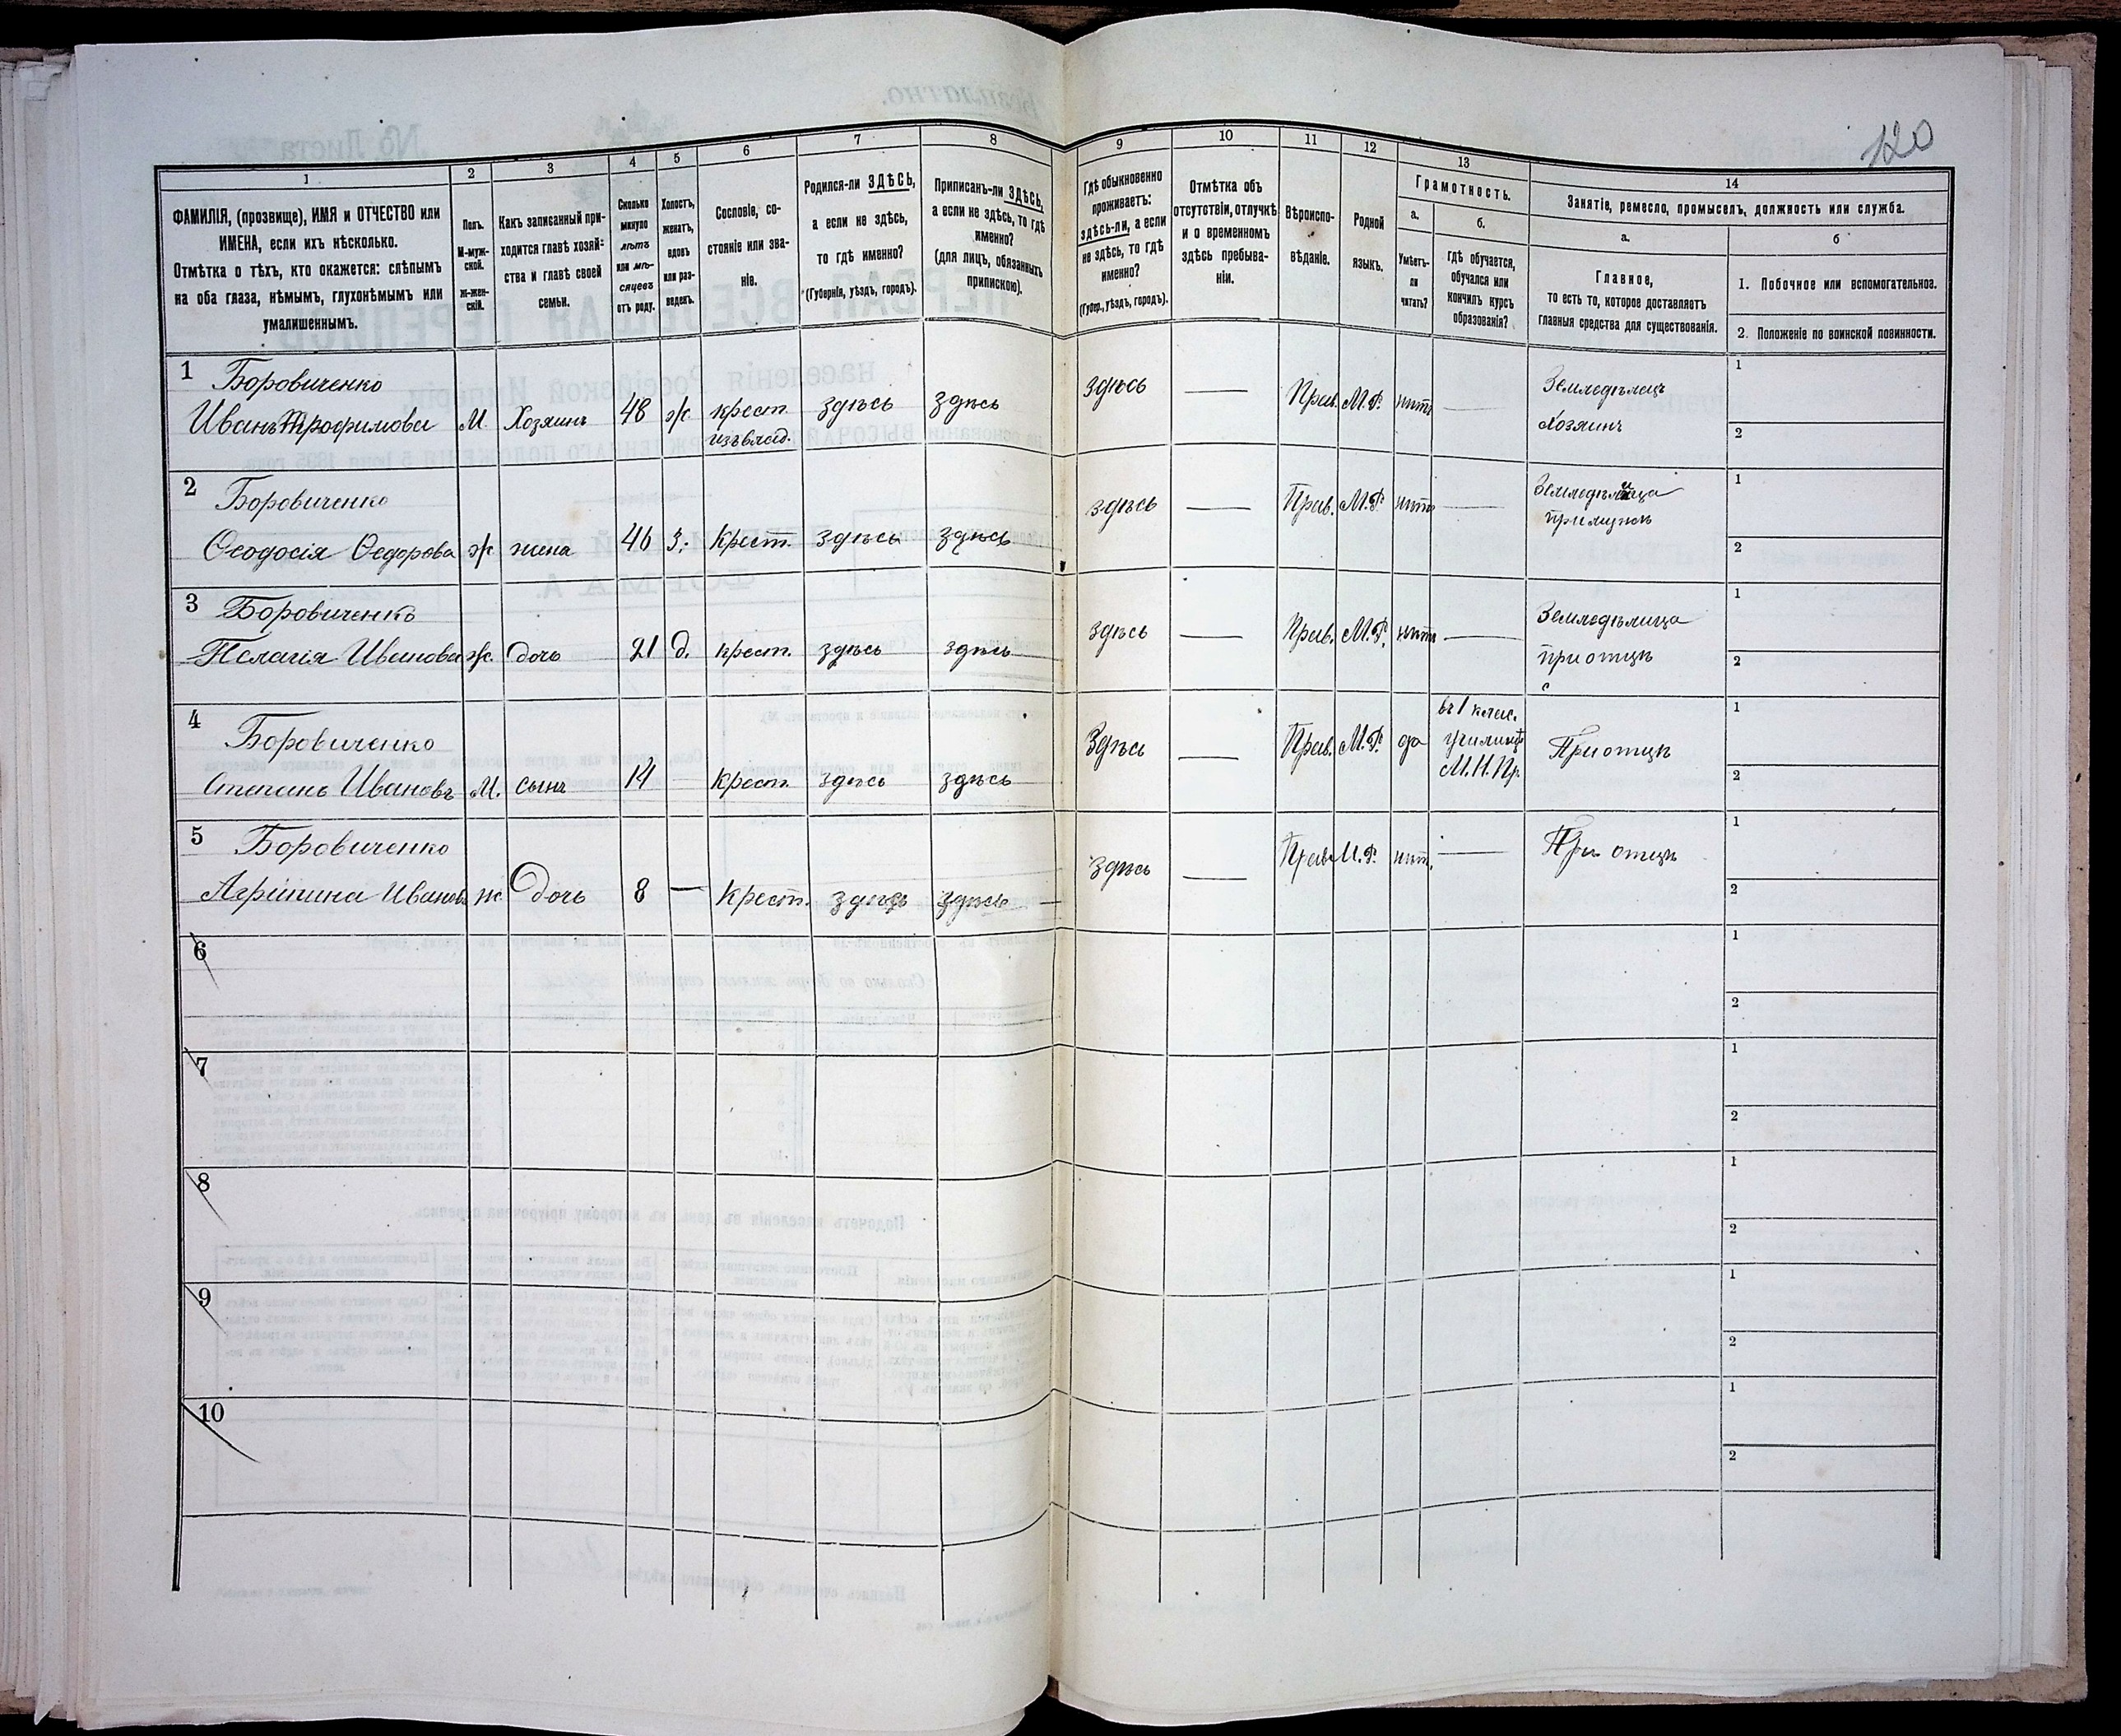 120
1
2
3
4
5
6
7
8
ФАМИЛІЯ, (прозвище), ИМЯ и ОТЧЕСТВО или
ИМЕНА, если ихъ нѣсколько.
Отмѣтка о тѣхъ, кто окажется: слѣпымъ
на оба глаза, нѣмымъ, глухонѣмымъ или
умалишеннымъ.
Полъ.
М-муж-
ской.
Ж-жен-
скій.
Какъ записанный при-
ходится главѣ хозяй-
ства и главѣ своей
семьи.
Сколько
минуло
лѣтъ
или мѣ-
сяцевъ
отъ роду.
Холостъ,
женатъ,
вдовъ
или раз-
веденъ.
Сословіе, со-
стояніе или зва-
ніе.
Родился-ли ЗДѢСЬ,
а если не здѣсь,
то гдѣ именно?
(Губернія, уѣздъ, городъ).
Приписанъ-ли ЗДѢСЬ,
а если не здѣсь, то гдѣ
именно?
(для лицъ, обязанныхъ
припискою).
9
10
11
12
13
14
Гдѣ обыкновенно
проживаетъ:
здѣсь-ли, а если
не здѣсь, то гдѣ
именно?
(Губер., уѣздъ, городъ).
Отмѣтка объ
отсутствіи, отлучкѣ
и о временномъ
здѣсь пребыва-
ніи.
Вѣроиспо-
вѣданіе.
Родной
языкъ.
Грамотность.
а.
Умѣетъ-
ли
читать?
б.
гдѣ обучается,
обучался или
кончилъ курсъ
образованія?
Занятіе, ремесло, промыселъ, должность или служба.
а.
Главное,
то есть то, которое доставляетъ
главныя средства для существованія.
б
1. Побочное или вспомогательное.
2. Положеніе по воинской повинности.
1 Боровиченко
Иванъ Трофимова М. Хозяинъ 48 ж. крест. здѣсь здѣсь
изъ влад.
здѣсь — Прав. М.Р. нѣтъ — Земледѣлецъ
хозяинъ
1
2
2 Боровиченко
Ѳеодосія Ѳедорова ж жена 46 з. Крест. здѣсь здѣсь
здѣсь — Прав. М.Р. нѣтъ — Земледѣлица
при мужѣ
1
2
3 Боровиченко
Пелагія Иванова ж. дочь 21 д. крест. здѣсь здѣсь
здѣсь — Прав. М.Р. нѣтъ — Земледѣлица
при отцѣ
1
2
4 Боровиченко
Степанъ Ивановъ М. сынъ 14 — крест. здѣсь здѣсь
Здѣсь — Прав. М.Р. да въ 1 клас.
училищѣ
М.Н.Пр. При отцѣ
1
2
5 Боровиченко
Агріпина Иванов ж дочь 8 — Крест. здѣсь здѣсь
здѣсь — Прав М.Р. нѣт. — При отцѣ
1
2
6
1
2
7
1
2
8
1
2
9
1
2
10
1
2